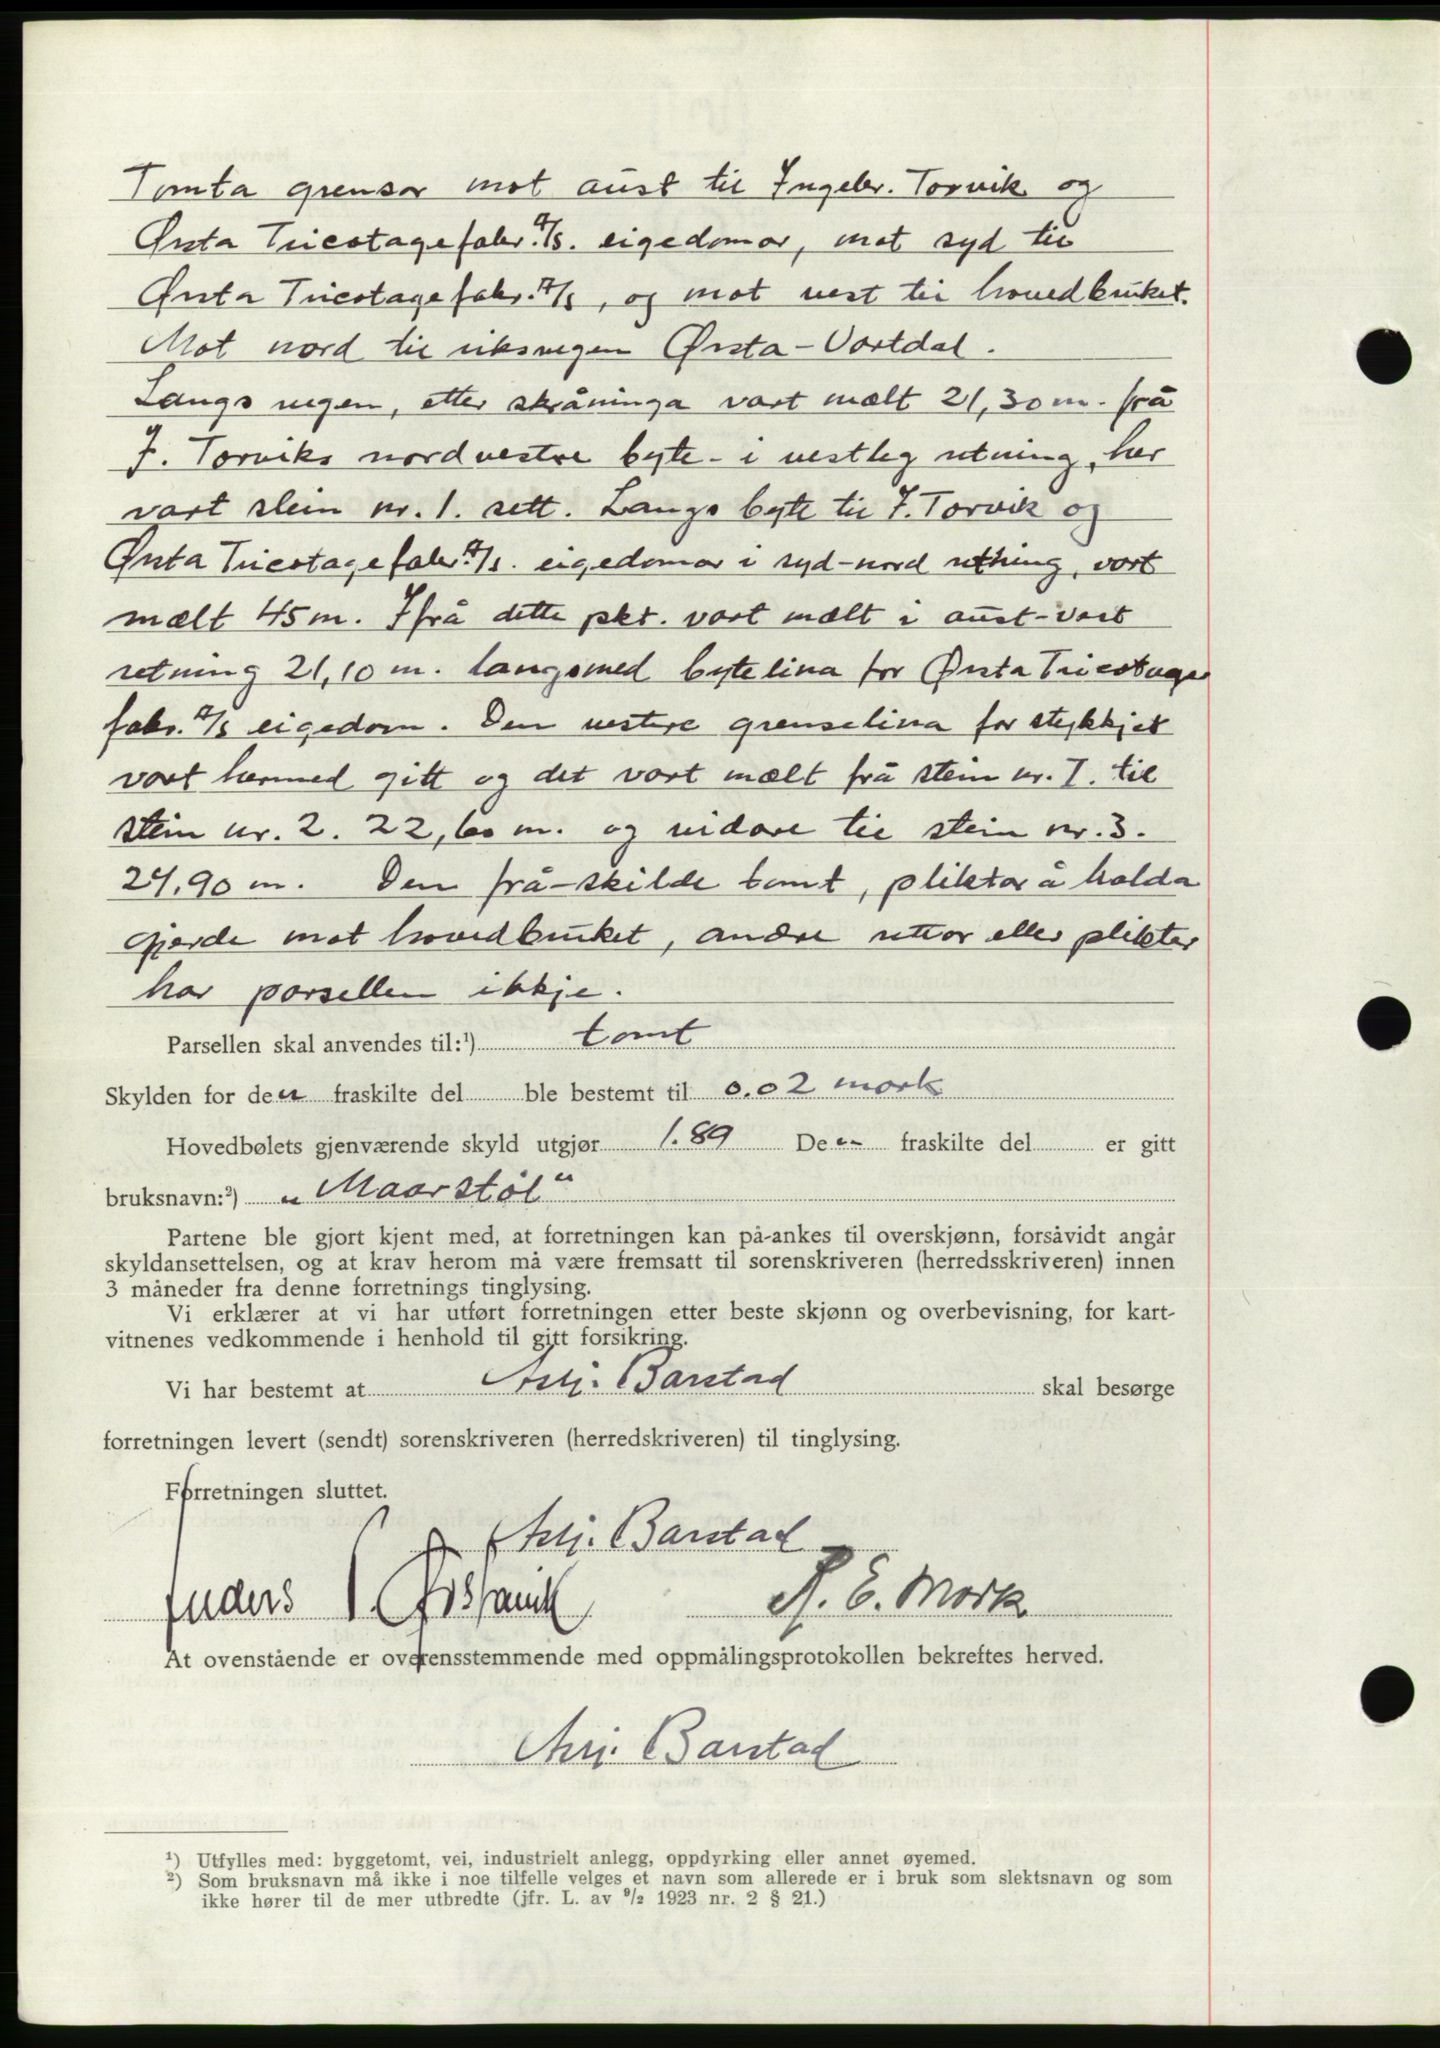 Tomta grensar mot aust til Ingebr. Torvik og
Ørsta Tricotagefabr. A/S. eigedomar, mot syd til
Ørsta Tricotagefabr. A/S, og mot vest til hovedbruket.
Mot nord til riksvegen Ørsta-Vartdal.
Langs vegen, etter skråninga vart mælt 21,30 m. frå
I. Torviks nordvestre byte- i vestleg retning, her
vart stein nr. 1. sett. Langs byte til I. Torvik og
Ørsta Tricotagefabr. A/S. eigedomar i syd-nord retning, vart
mælt 45 m. Ifrå dette pkt. vart mælt i aust-vest
retning 21,10 m. langsmed bytelina for Ørsta Tricotage
fabr. A/S eigedom. Den vestre grenselina for stykkjet
vart hermed gitt og det vart mælt frå stein nr. I. til
stein nr. 2. 22,60 m. og vidare til stein nr. 3.
24,90 m. Den frå-skilde tomt, pliktar å halda
gjerde mot hovedbruket, andre rettar eller plikter
har parsellen ikkje.
Parsellen skal anvendes til:¹) tomt
Skylden for den fraskilte del ble bestemt til 0.02 mark
Hovedbølets gjenværende skyld utgjør 1.89 Den fraskilte del er gitt
bruksnavn:²) "Maarstøl"
Partene ble gjort kjent med, at forretningen kan på-ankes til overskjønn, forsåvidt angår
skyldansettelsen, og at krav herom må være fremsatt til sorenskriveren (herredsskriveren) innen
3 måneder fra denne forretnings tinglysing.
Vi erklærer at vi har utført forretningen etter beste skjønn og overbevisning, for kart-
vitnenes vedkommende i henhold til gitt forsikring.
Vi har bestemt at Asbj. Barstad skal besørge
forretningen levert (sendt) sorenskriveren (herredskriveren) til tinglysing.
Forretningen sluttet.
Asbj. Barstad
Anders P. R. E. Mork
At ovenstående er overensstemmende med oppmålingsprotokollen bekreftes herved.
Asbj. Barstad
¹) Utfylles med: byggetomt, vei, industrielt anlegg, oppdyrking eller annet øyemed.
²) Som bruksnavn må ikke i noe tilfelle velges et navn som allerede er i bruk som slektsnavn og som
ikke hører til de mer utbredte (jfr. L. av 9/2 1923 nr. 2 § 21.)